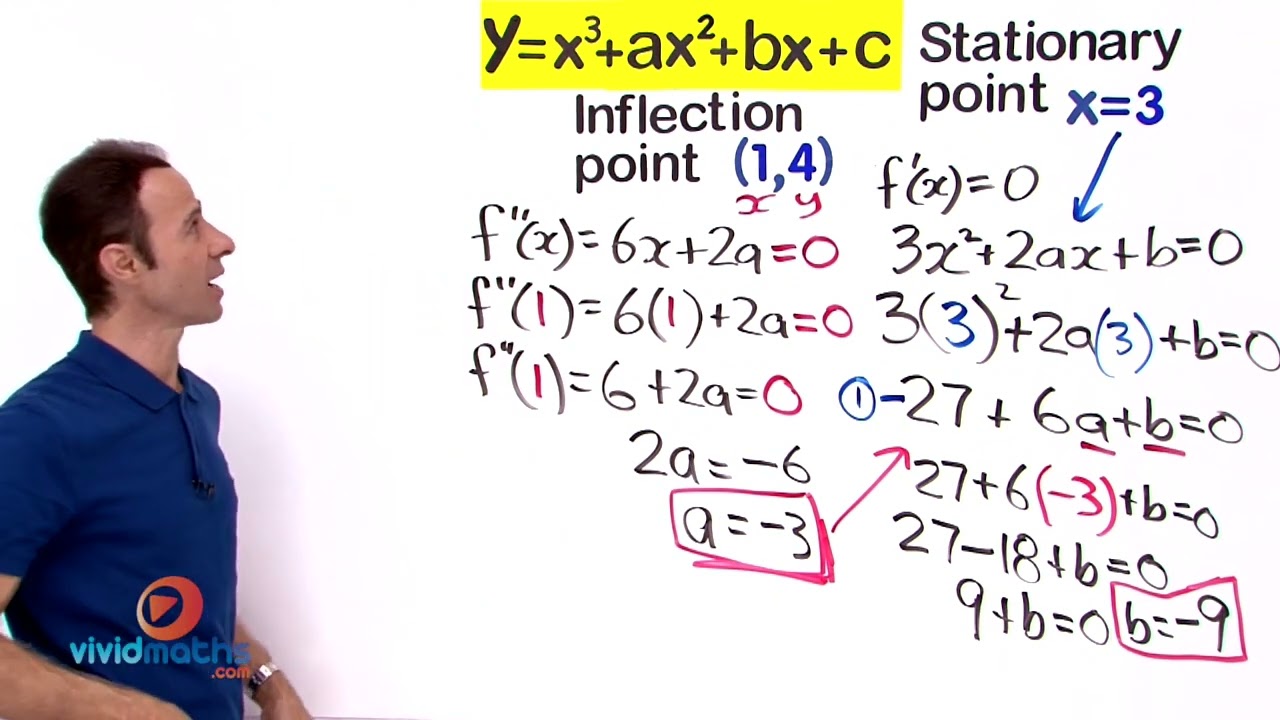 y=x³+ax²+bx+c
Inflection
point (1,4)
x y
f''(x)=6x+2a=0
f''(1)=6(1)+2a=0
f''(1)=6+2a=0
2a=-6
a=-3
Stationary
point x=3
f'(x)=0
3x²+2ax+b=0
3(3)²+2a(3)+b=0
①-27+6a+b=0
27+6(-3)+b=0
27-18+b=0
9+b=0 b=-9
vividmaths
.com